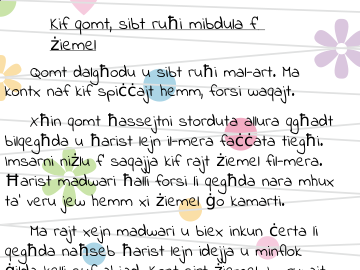 Kif qomt, sibt ruħi mibdula f'
żiemel
Qomt dalgħodu u sibt ruħi mal-art. Ma
kontx naf kif spiċċajt hemm, forsi waqajt.
Xħin qomt ħassejtni storduta allura qgħadt
bilqegħda u ħarist lejn il-mera faċċata tiegħi.
Imsarni niżlu f' saqajja kif rajt żiemel fil-mera.
Ħarist madwari ħalli forsi li qegħda nara mhux
ta' veru jew hemm xi żiemel ġo kamarti.
Ma rajt xejn madwari u biex inkun ċerta li
qegħda naħseb ħarist lejn idejja u minflok